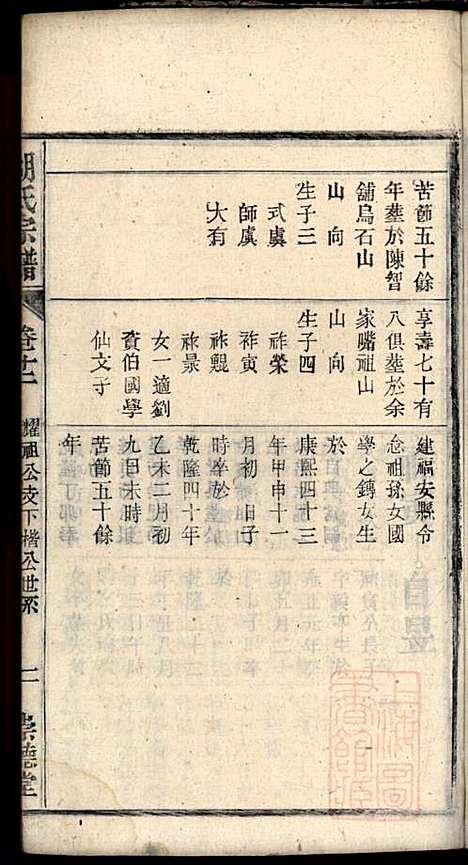 苦節五十餘
年塟於陳智
舖烏石山
山 向
生子三
式虞
師虞
大有
享壽七十有
八俱塟於余
家嘴祖山
山 向
生子四
祚榮
祚寅
祚鯤
祿景
女一適劉
賓伯國學
仙文子
建福安縣令
忿祖孫女國
學之鏄女生
於
康熙四十三
年甲申十一
月初一日子
時卒於
乾隆四十年
乙未二月初
九日未時
苦節五十餘
年
胡氏宗譜
卷十二
耀祖公支下楷公世系
二
崇德堂
上海圖
書館藏